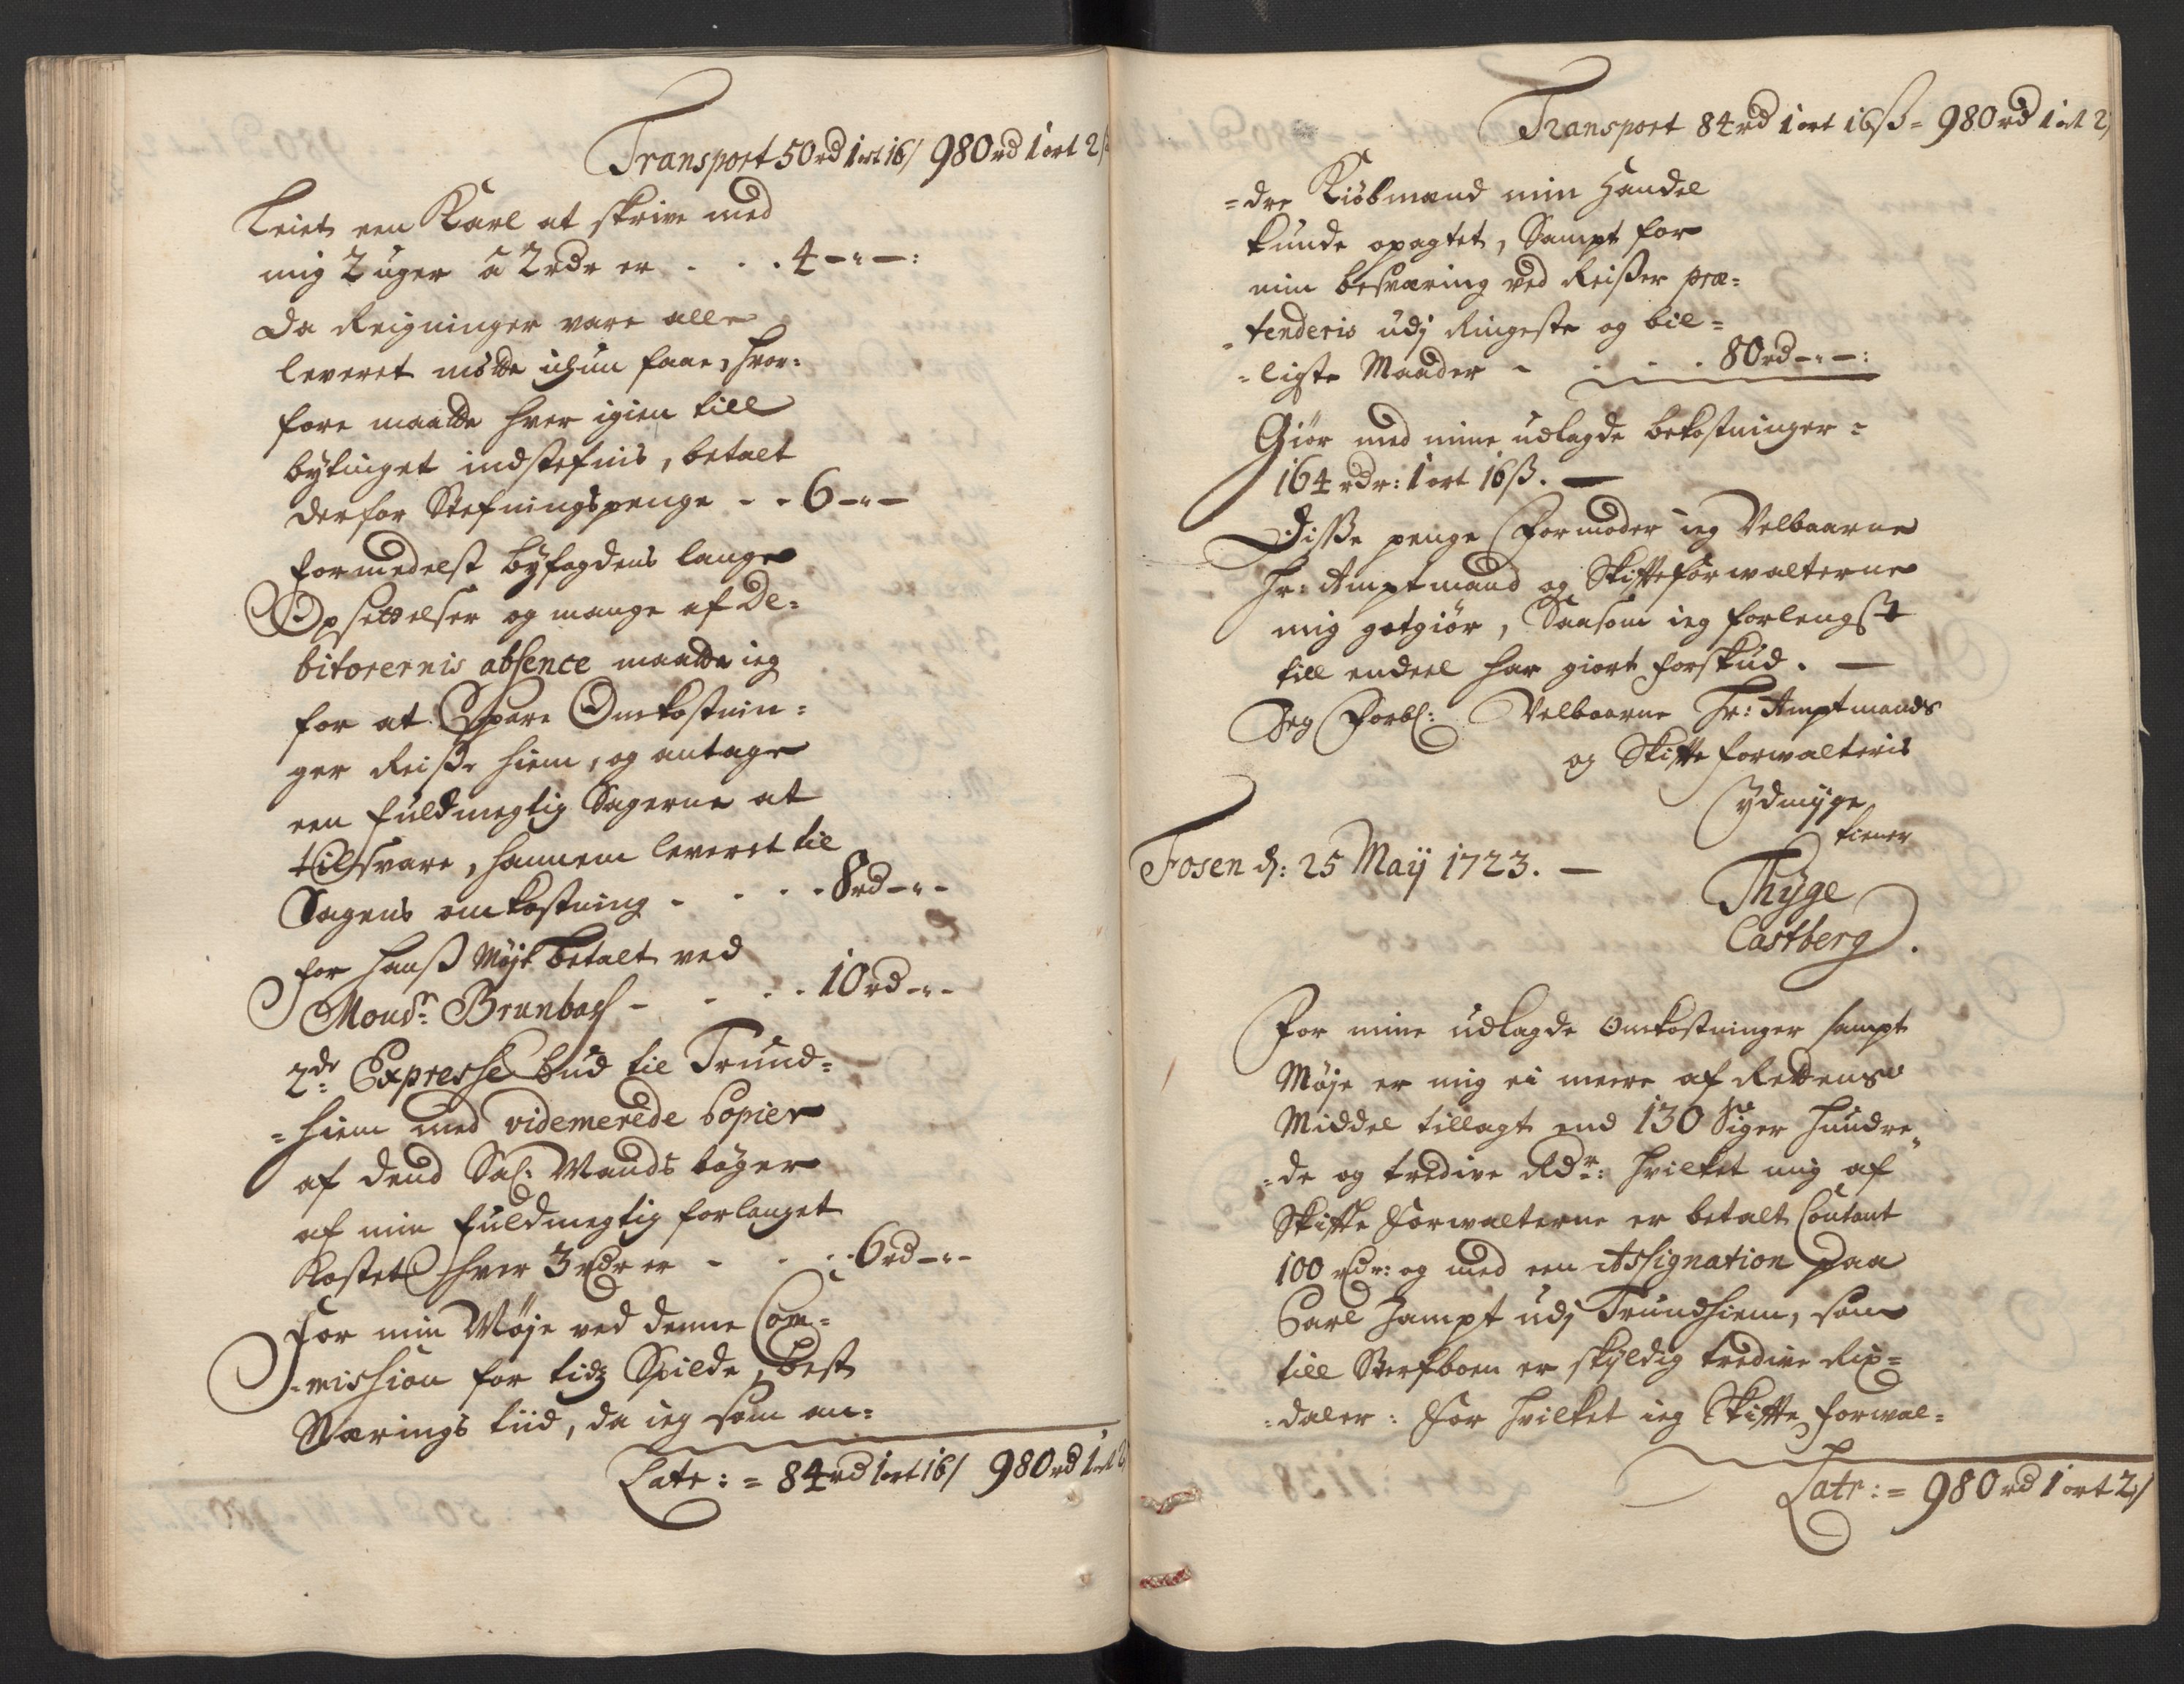 Transport 50rd 1ort 16/ 980rd 1ort 2/
Leiet een Karl at skrive med
mig 2 uger a 2 rdr er . . . 4-"-:
Da Reigninger vare alle
leveret mötte ichun faae, hvor:
fore maatte hver igien till
bytinget indstefnis, betalt
derfor Stefningspenge - - 6-"-
formedelst byfogdens lange
Opsettelser og mange af De=
bitorernis absence maatte ieg
for at Spare Omkostnin=
ger Reise hiem, og antage
een fuldmegtig Sagerne at
tilsvare, hannem leveret til
Sagens omkostning - - - 8rd-"-
for hanß Möje betalt ved
Monsr: Brunbach - - - 10rd-"-
2de: Expresse bud til Trund=
=hiem med videmerede Copier
af dend Sal: Mands böger
af min fuldmegtig forlanget
kostet hver 3 rdr er - - - 6rd-"-
For min Möje ved denne Com=
=mission for tidz Spilde, best
Nærings tiid, da ieg som an=
Latr: = 84rd 1ort 16/ 980rd 1ort 2/
Transport 84rd 1ort 16ß = 980rd 1ort 2/
=dre Kiöbmænd min Handel
kunde opagtet, Sampt for
min besværing ved Reißer præ=
=tenderis udj Ringeste og bil=
=ligste Maader - . . . 80rd-"-:
Giör med mine udlagde bekostninger =
164 rdr: 1 ort 16ß. —
Disse penge formoder ieg Velbaarne
Hr: Amptmand og Skifteforwalterne
mig gotgiör, Saasom ieg forlengst
till endeel har giort forskud. —
Jeg forbl: Velbaarne Hr: Amptmands
og Skifte forwalteris
ydmyge
tiener
Fosen d: 25 Maij 1723. —
Thyge
Castberg.
For mine udlagde Omkostninger sampt
Möje er mig ei meere af Rettens
Middel tillagt end 130 Siger hundre=
=de og tredive Rdr: hvilket mig af
Skifte forwalterne er betalt Contant
100 rdr: og med een Assignation paa
Carl Hampt udj Trundhiem, som
till Sterfboen er skyldig tredive Rix=
=daler: For hvilket ieg Skifte forwal=
Latr: = 980rd 1ort 2/